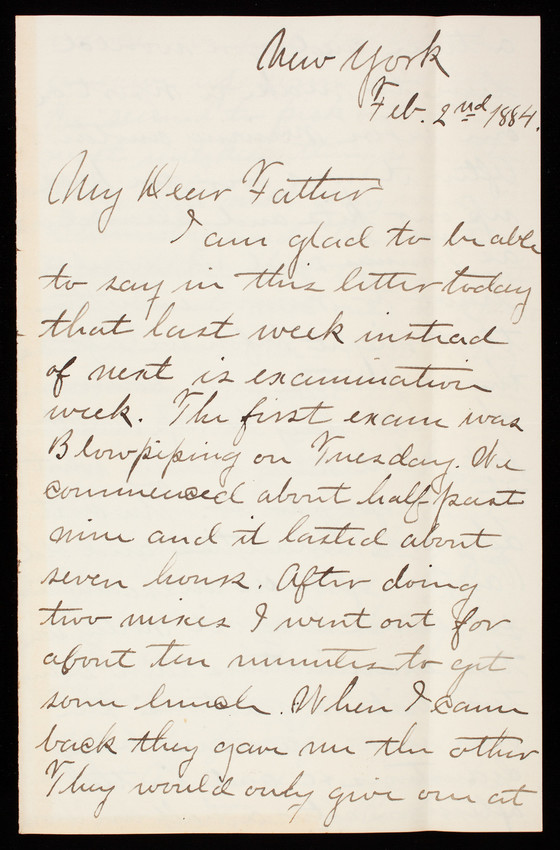 New York
Feb. 2nd 1884.
My Dear Father
I am glad to be able
to say in this letter today
that last week instead
of next is examination
week. The first exam was
Blowpiping on Tuesday. We
commenced about half past
nine and it lasted about
seven hours. After doing
two mixes I went out for
about ten minutes to get
some lunch. When I came
back they gave me the other
They would only give one at